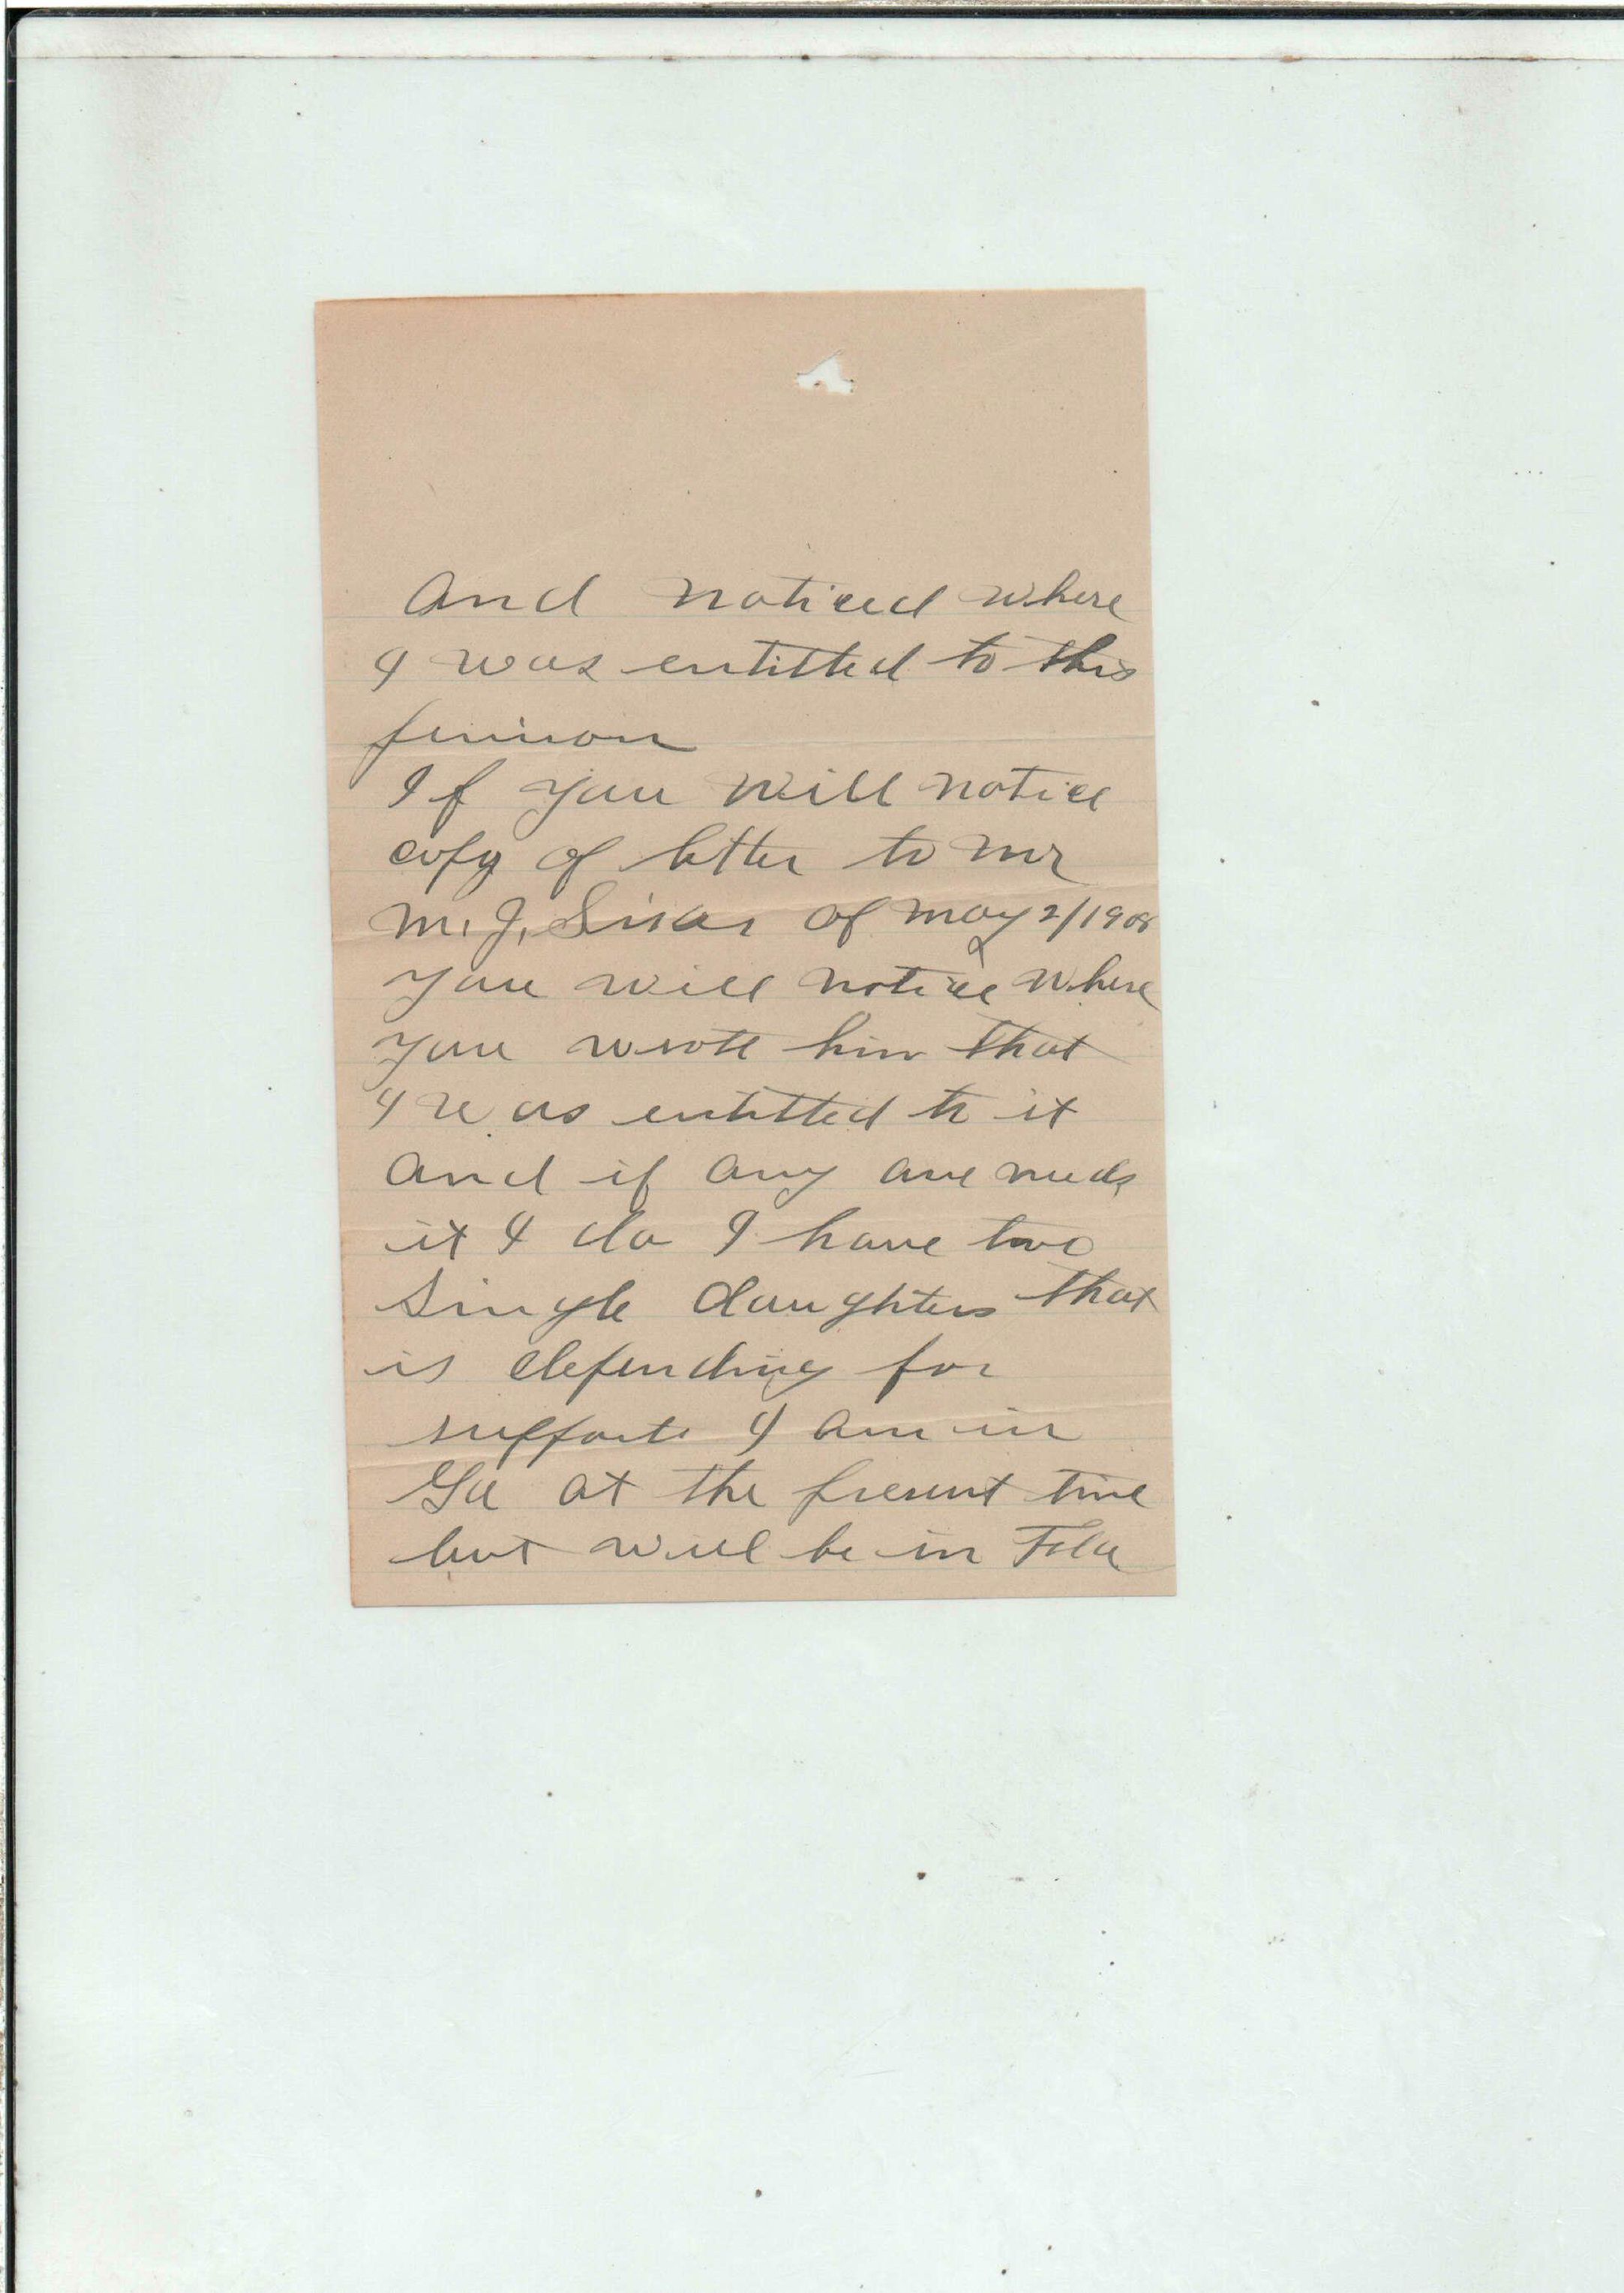 And noticed where
I was entitled to this
pension
If you will notice
copy of letter to Mr
M. J. of May 2/1908
you will notice where
you wrote him that
I was entitled to it
and if any one needs
it I do I have two
single daughters that
is depending for
support. I am in
Ga at the present time
but will be in Fla